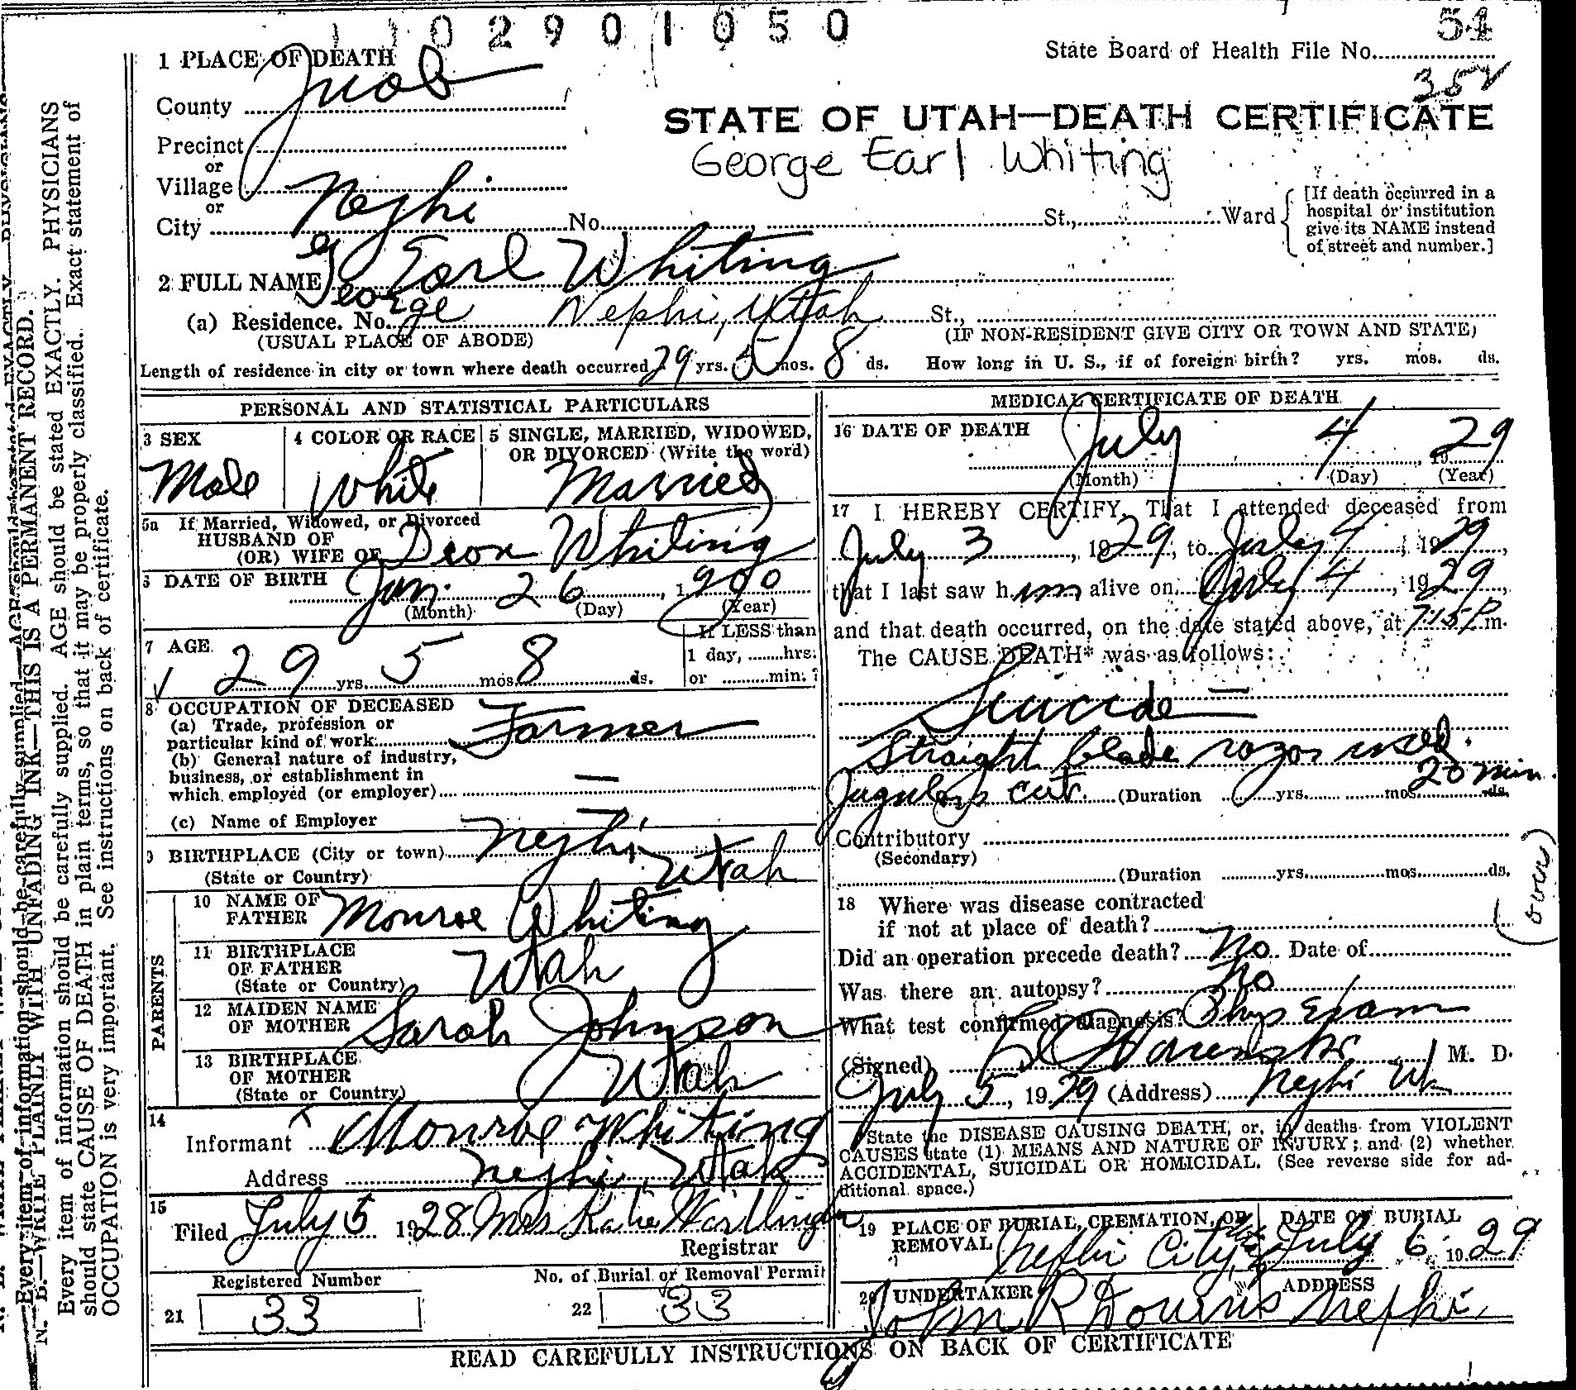 1 1 0 2 9 0 1 0 5 0
54
State Board of Health File No.
352
1 PLACE OF DEATH
County Juab
STATE OF UTAH—DEATH CERTIFICATE
Precinct
George Earl Whiting
or
Village
or
City Nephi No. St., Ward
[If death occurred in a hospital or institution give its NAME instead of street and number.]
2 FULL NAME G Earl Whiting
George
(a) Residence. No. Nephi, Utah St.,
(USUAL PLACE OF ABODE) (IF NON-RESIDENT GIVE CITY OR TOWN AND STATE)
Length of residence in city or town where death occurred 29 yrs. 5 mos. 8 ds. How long in U. S., if of foreign birth? yrs. mos. ds.
PERSONAL AND STATISTICAL PARTICULARS
3 SEX 4 COLOR OR RACE 5 SINGLE, MARRIED, WIDOWED, OR DIVORCED (Write the word)
Male White Married
5a If Married, Widowed, or Divorced
HUSBAND OF
(OR) WIFE OF Deon Whiting
6 DATE OF BIRTH Jan. 26, 1900
(Month) (Day) (Year)
7 AGE 29 yrs. 5 mos. 8 ds.
If LESS than
1 day, ........hrs.
or ..........min.?
8 OCCUPATION OF DECEASED
(a) Trade, profession or
particular kind of work Farmer
(b) General nature of industry,
business, or establishment in
which employed (or employer) —
(c) Name of Employer
9 BIRTHPLACE (City or town) Nephi
(State or Country) Utah
PARENTS
10 NAME OF FATHER Monroe Whiting
11 BIRTHPLACE OF FATHER Utah
(State or Country)
12 MAIDEN NAME OF MOTHER Sarah Johnson
13 BIRTHPLACE OF MOTHER Utah
(State or Country)
14
Informant Monroe Whiting
Address Nephi, Utah
15
Filed July 5 1928 Mrs Katie
Registrar
Registered Number No. of Burial or Removal Permit
21 33 22 33
MEDICAL CERTIFICATE OF DEATH
16 DATE OF DEATH July 4, 1929
(Month) (Day) (Year)
17 I HEREBY CERTIFY, That I attended deceased from
July 3, 1929, to July 4, 1929,
that I last saw him alive on July 4, 1929
and that death occurred, on the date stated above, at 7:15 P m.
The CAUSE DEATH* was as follows:
Suicide —
Straight blade razor used.
20 min.
Jugulars cut. (Duration yrs. mos. ds.
Contributory
(Secondary)
(Duration yrs. mos. ds.
(over)
18 Where was disease contracted
if not at place of death?
Did an operation precede death? No Date of
Was there an autopsy? No
What test confirmed diagnosis? Phys Exam
(Signed) M. D.
July 5, 1929 (Address) Nephi Ut
State the DISEASE CAUSING DEATH, or, in deaths from VIOLENT
CAUSES state (1) MEANS AND NATURE OF INJURY; and (2) whether
ACCIDENTAL, SUICIDAL OR HOMICIDAL. (See reverse side for additional space.)
19 PLACE OF BURIAL, CREMATION, OR REMOVAL DATE OF BURIAL
Nephi City, July 6 1929
20 UNDERTAKER ADDRESS
John R Nephi,
READ CAREFULLY INSTRUCTIONS ON BACK OF CERTIFICATE
N. B.—WRITE PLAINLY WITH UNFADING INK—THIS IS A PERMANENT RECORD.
Every item of information should be carefully supplied. AGE should be stated EXACTLY. PHYSICIANS
should state CAUSE OF DEATH in plain terms, so that it may be properly classified. Exact statement of
OCCUPATION is very important. See instructions on back of certificate.